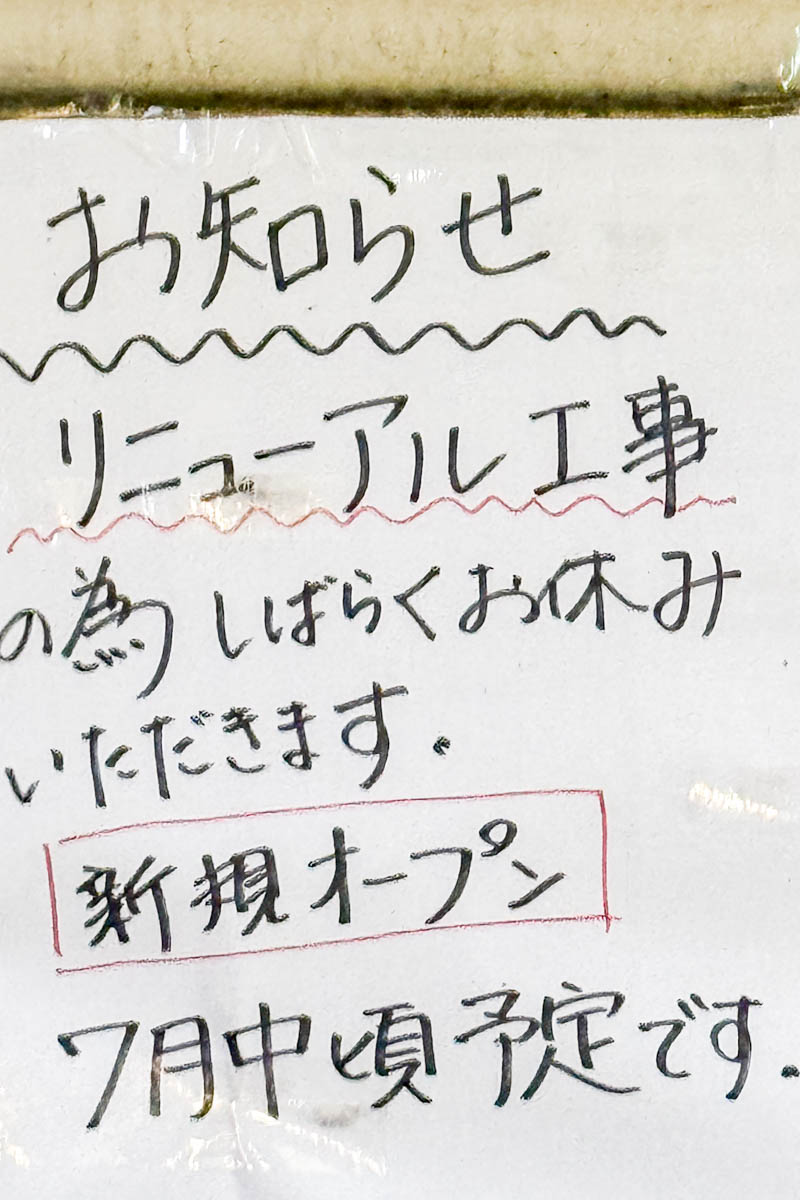 お知らせ
リニューアル工事
の為しばらくお休み
いただきます.
新規オープン
7月中頃予定です.